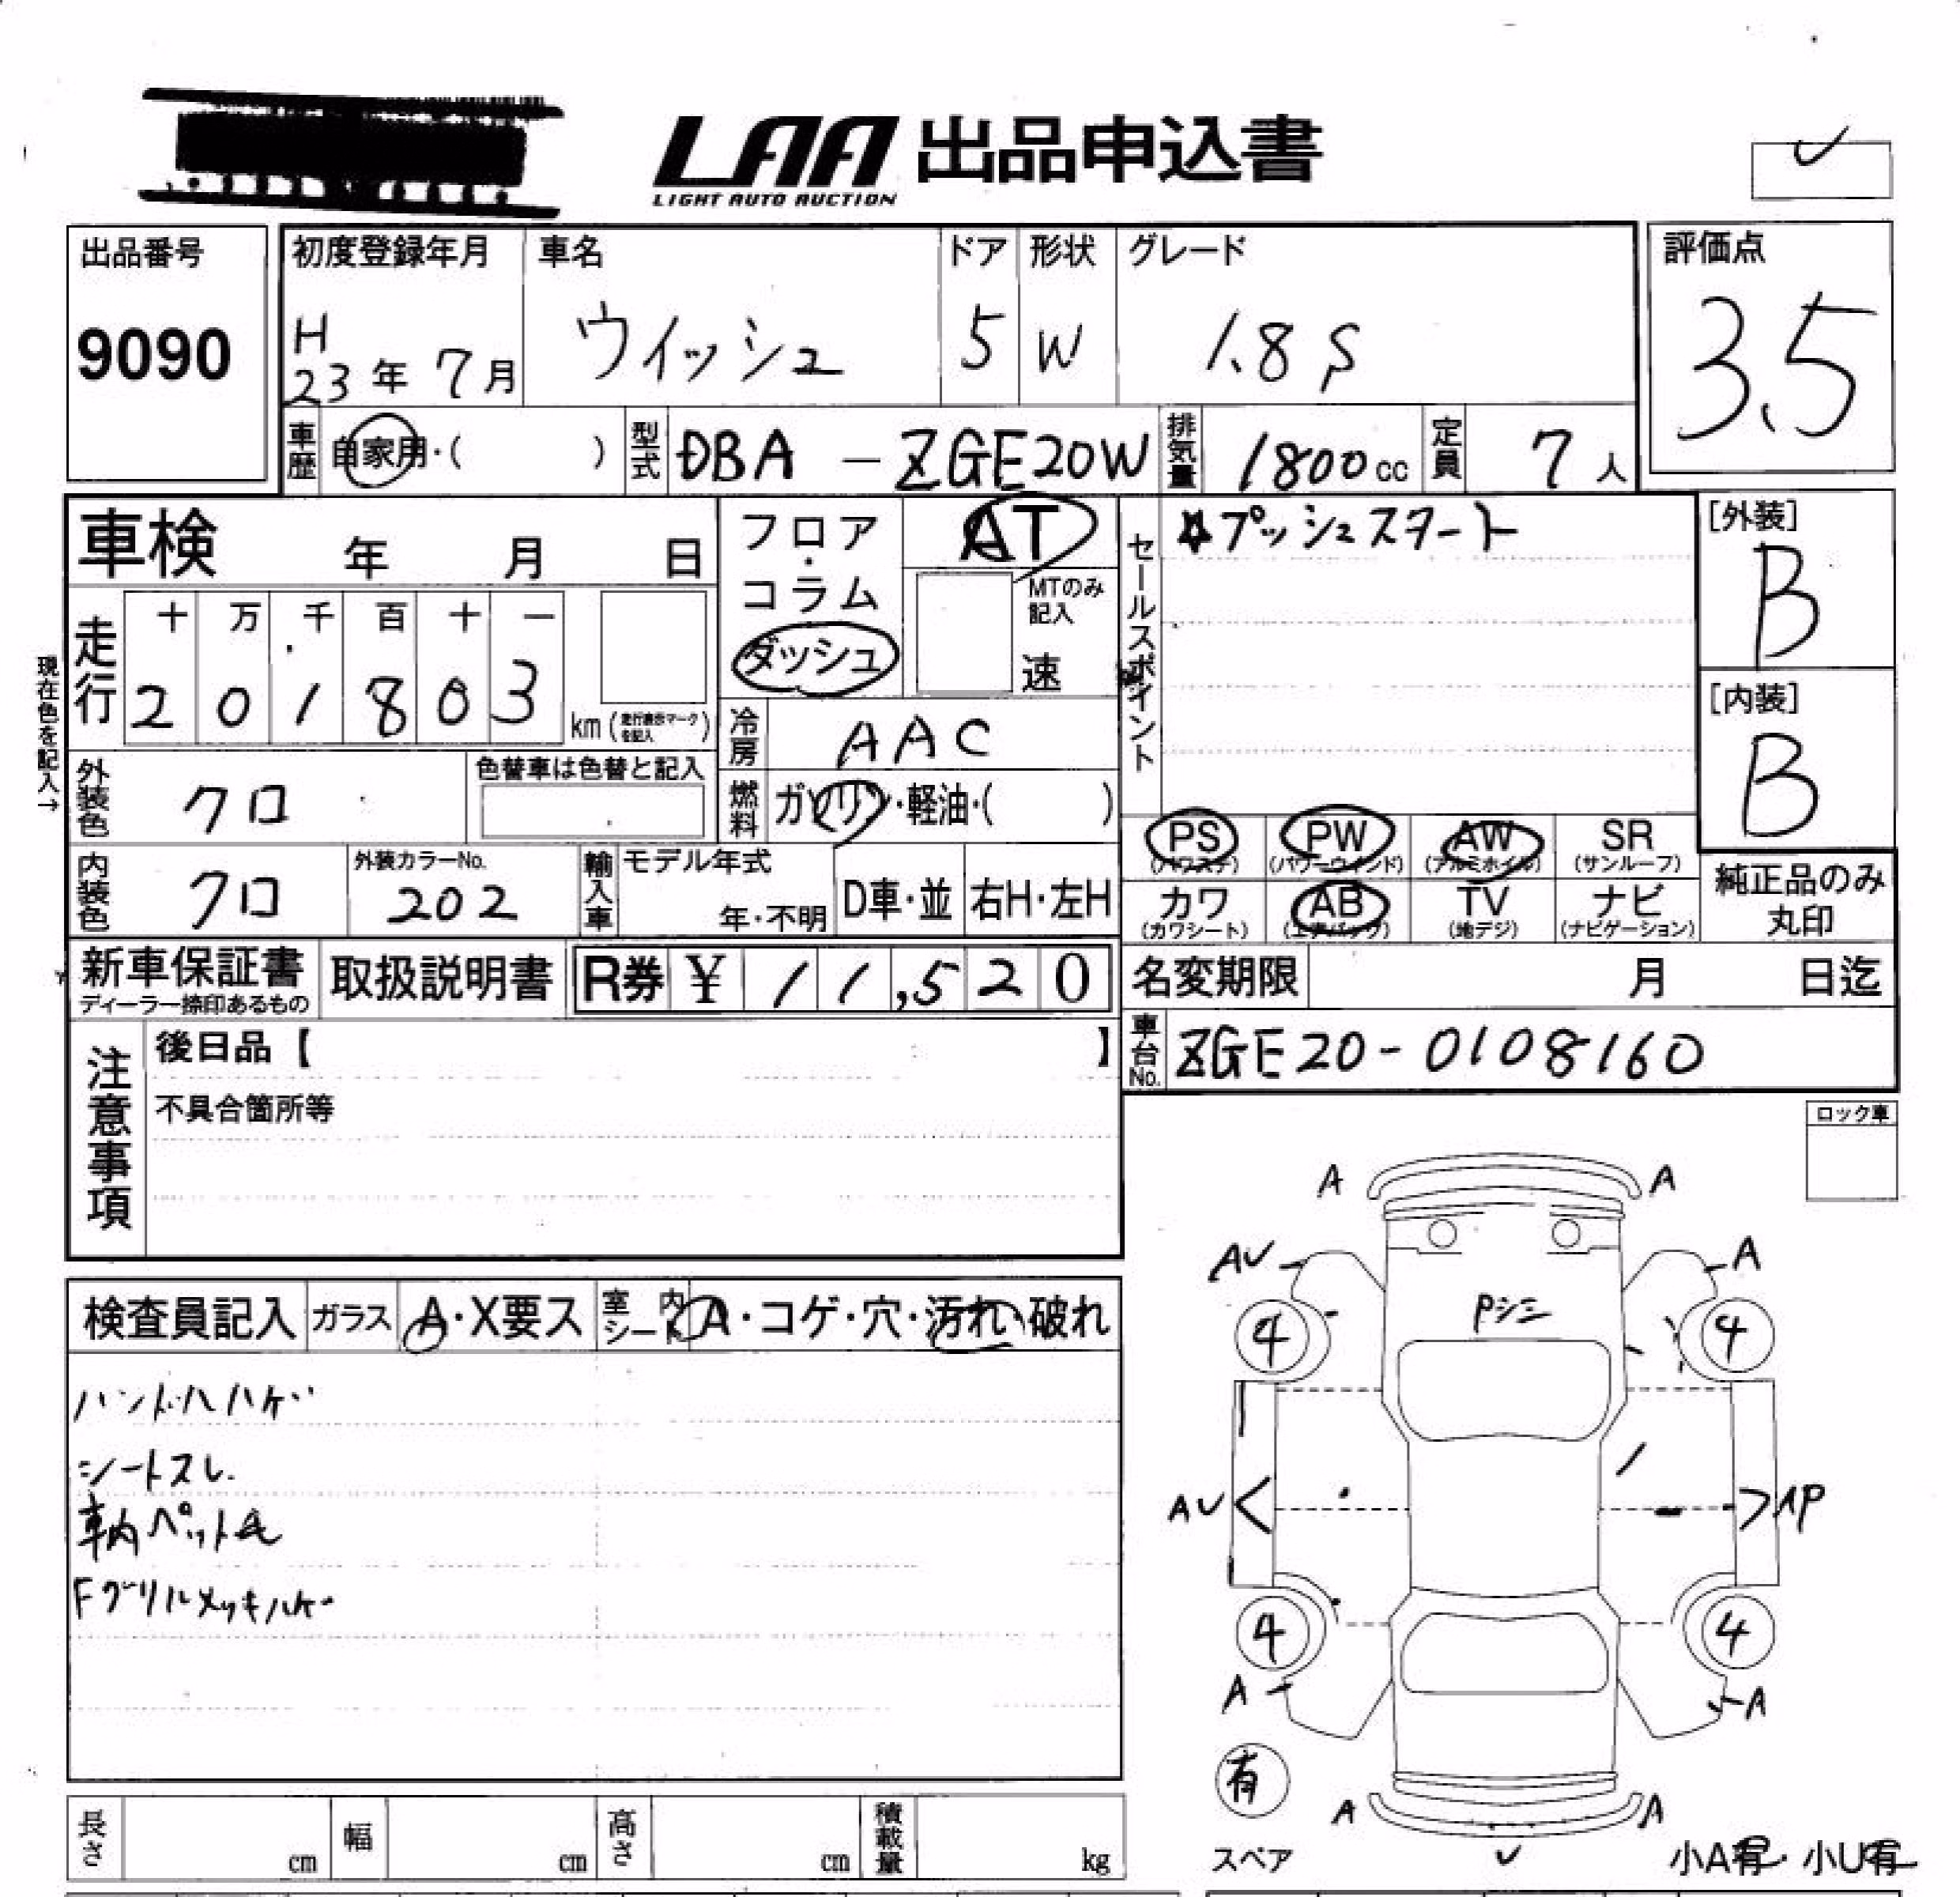 LAA 出品申込書
LIGHT AUTO AUCTION
出品番号
9090
初度登録年月
H
23年 7月
車名
ウイッシュ
ドア
5
形状
W
グレード
1.8 S
評価点
3.5
車歴
自家用・( )
型式
DBA - ZGE20W
排気量
1800 cc
定員
7 人
車検 年 月 日
フロア
・
コラム
ダッシュ
AT
MTのみ
記入
速
セールスポイント
☆プッシュスタート
[外装]
B
[内装]
B
現在色を記入→
走行
十 万 千 百 十 一
2 0 1 8 0 3
km (走行表示マークを記入)
冷房
AAC
燃料
ガソリン・軽油・( )
外装色
クロ
色替車は色替と記入
内装色
クロ
外装カラーNo.
202
輸入車
モデル年式
年・不明
D車・並
右H・左H
PS
(パワステ)
PW
(パワーウィンド)
AW
(アルミホイル)
SR
(サンルーフ)
カワ
(カワシート)
AB
(エアバック)
TV
(地デジ)
ナビ
(ナビゲーション)
純正品のみ
丸印
新車保証書
ディーラー捺印あるもの
取扱説明書
R券 ¥ 11,520
名変期限 月 日迄
車台No.
ZGE20-0108160
注意事項
後日品【 】
不具合箇所等
ロック車
検査員記入
ガラス
A・X要ス
室内シート
A・コゲ・穴・汚れ・破れ
ハンドルハゲ
シートスレ
車内ペット毛
Fグリルメッキハゲ
A A
AV A
Pシミ
4 4
AV AP
4 4
A A
有
スペア
A A
小A有・小U有
長さ cm
幅 cm
高さ cm
積載量 kg